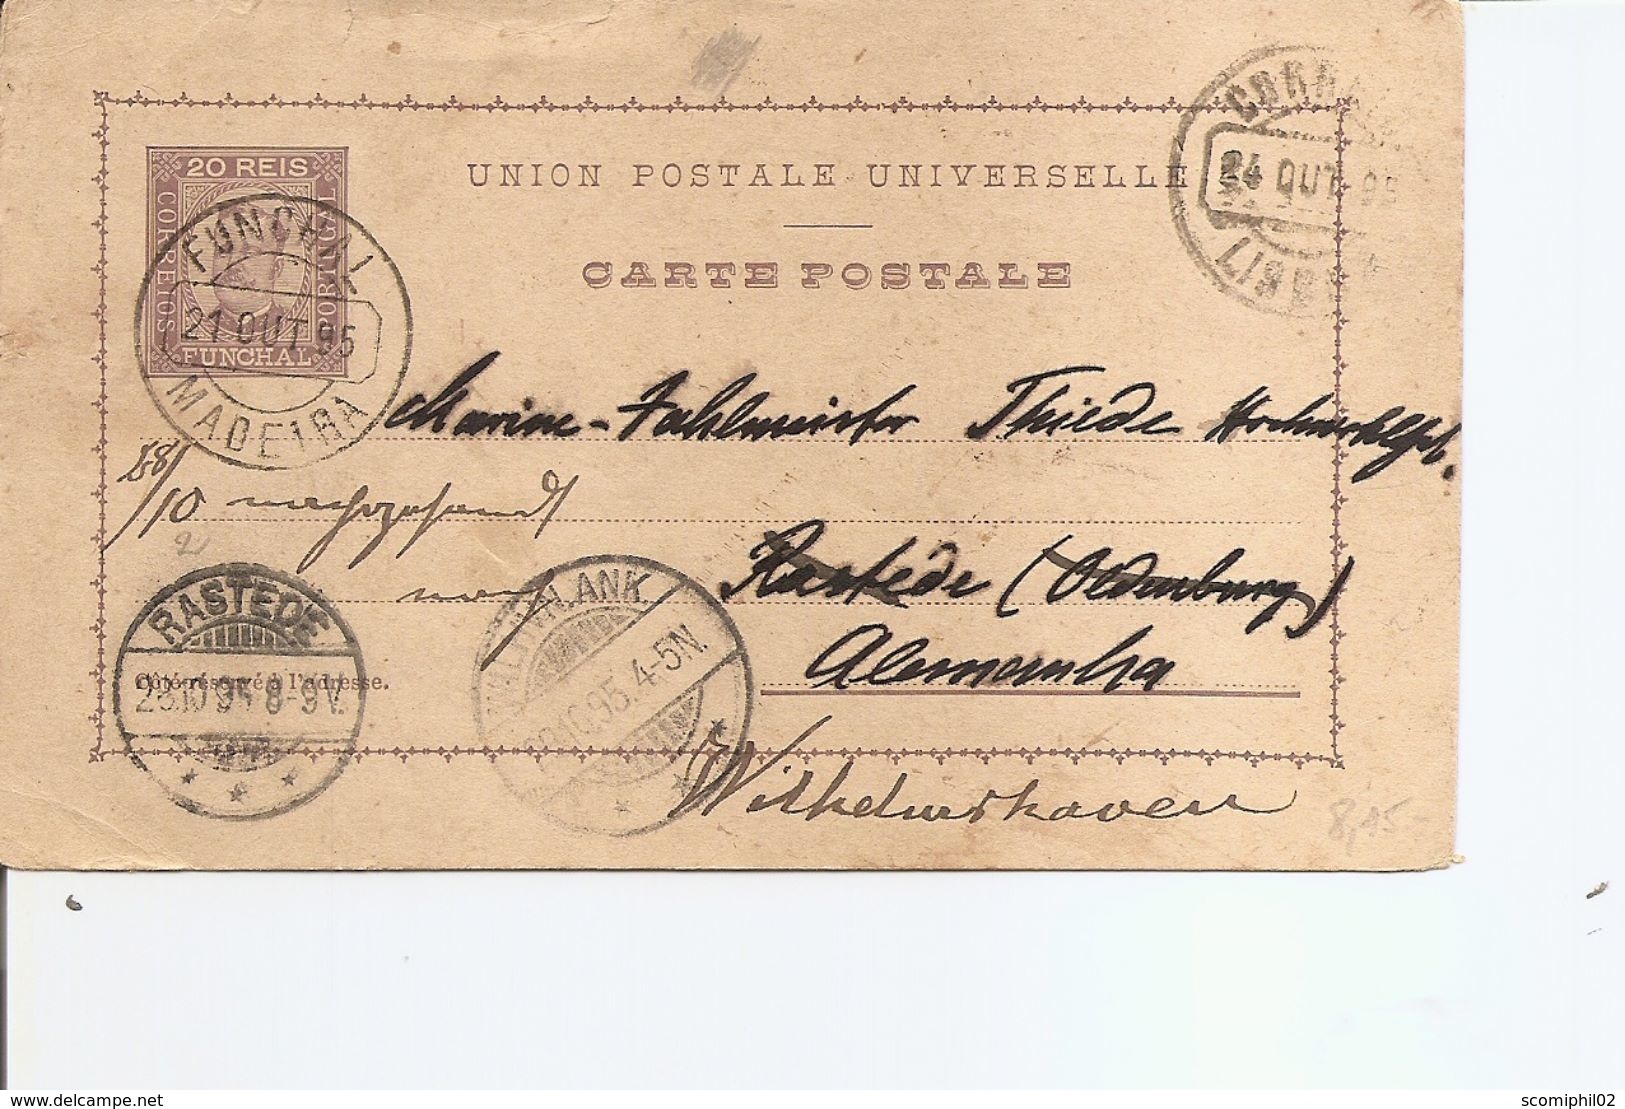 20 REIS
CORREIOS
PORTUGAL
FUNCHAL
FUNCHAL
21 OUT 95
MADEIRA
UNION POSTALE UNIVERSELLE
CARTE POSTALE
24 OUT 95
Marine-Zahlmeister Thiede Hochwohlgeb.
28/10 nachzusenden
nach
Rastede (Oldenburg)
Alemanha
Wilhelmshaven
RASTEDE
10.95 8-9V.
Côté réservé à l'adresse.
ANK.
10.95. 4-5N.
8,15-
www.delcampe.net
scomiphil02